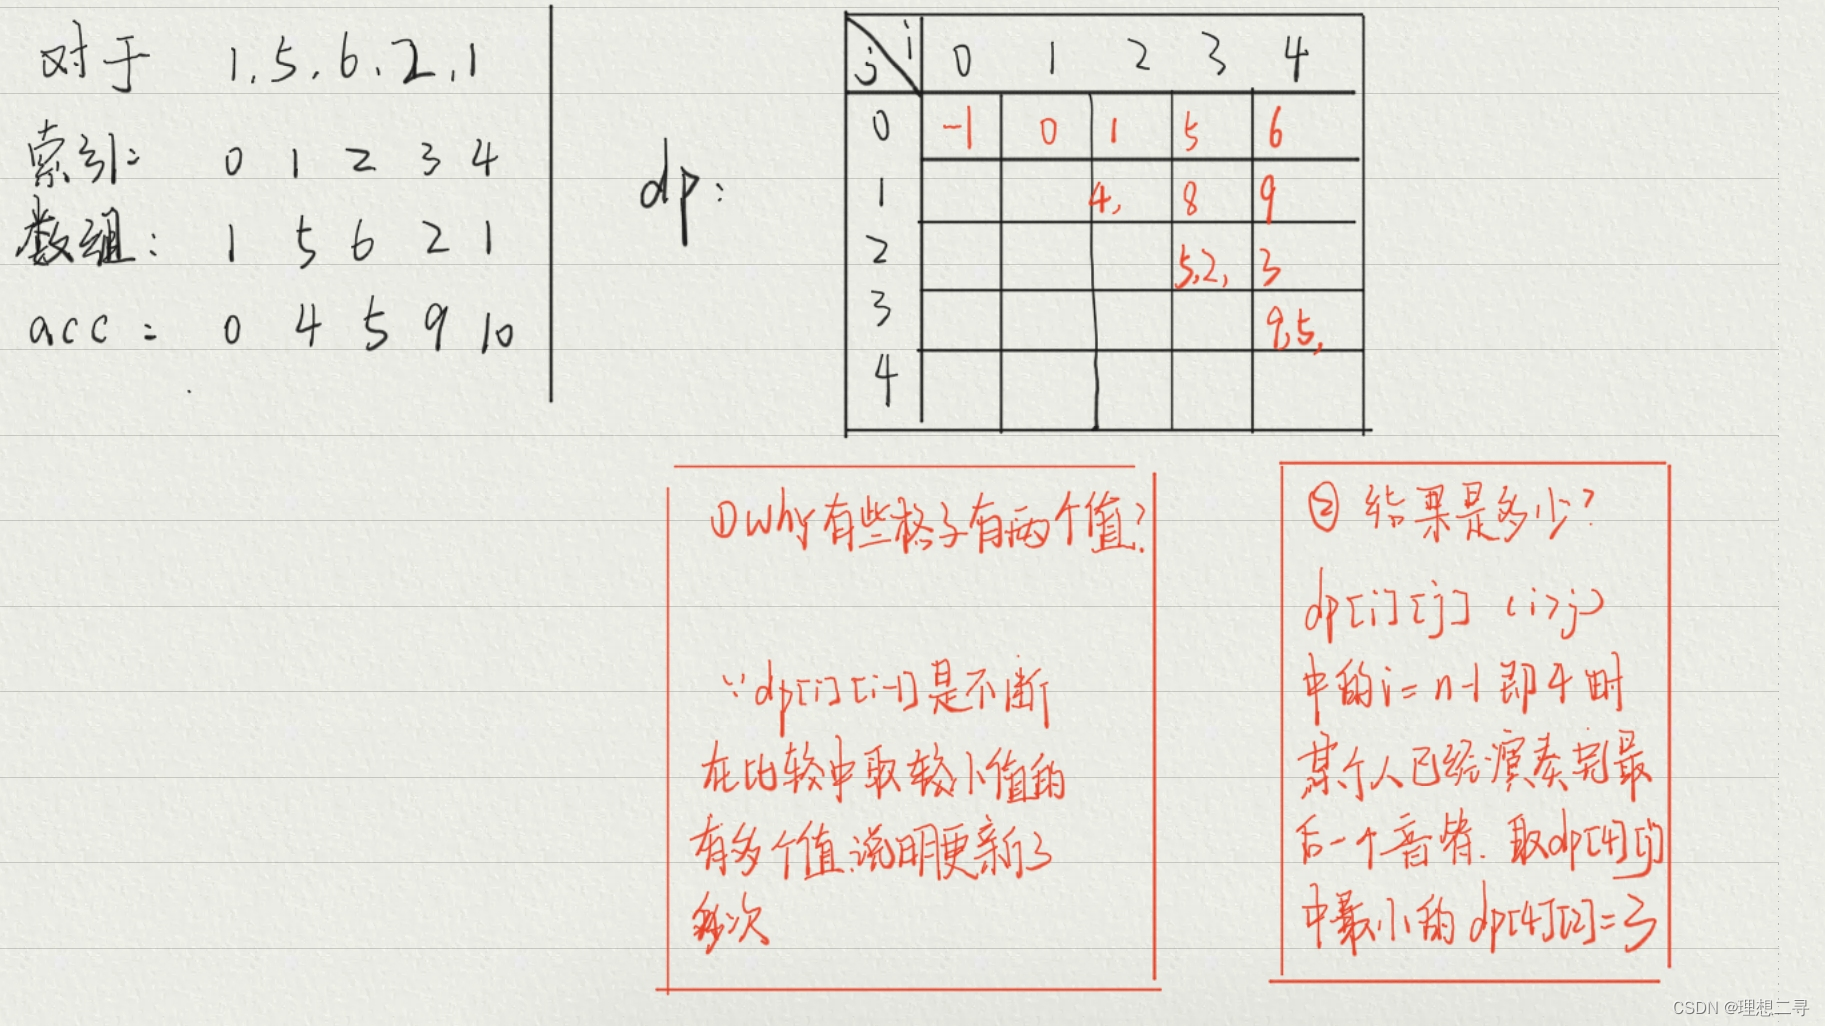 对于 1, 5, 6, 2, 1
索引: 0 1 2 3 4
数组: 1 5 6 2 1
acc: 0 4 5 9 10
dp:
j i 0 1 2 3 4
0 -1 0 1 5 6
1 4, 8 9
2 5,2, 3
3 9,5,
4
①why有些格子有两个值?
∵dp[i][i-1]是不断
在比较中取较小值的
有多个值.说明更新了
多次
② 结果是多少?
dp[i][j] (i>j)
中的i=n-1即4时
某个人已经演奏完最
后一个音符.取dp[4][j]
中最小的dp[4][2]=3
CSDN @理想二寻